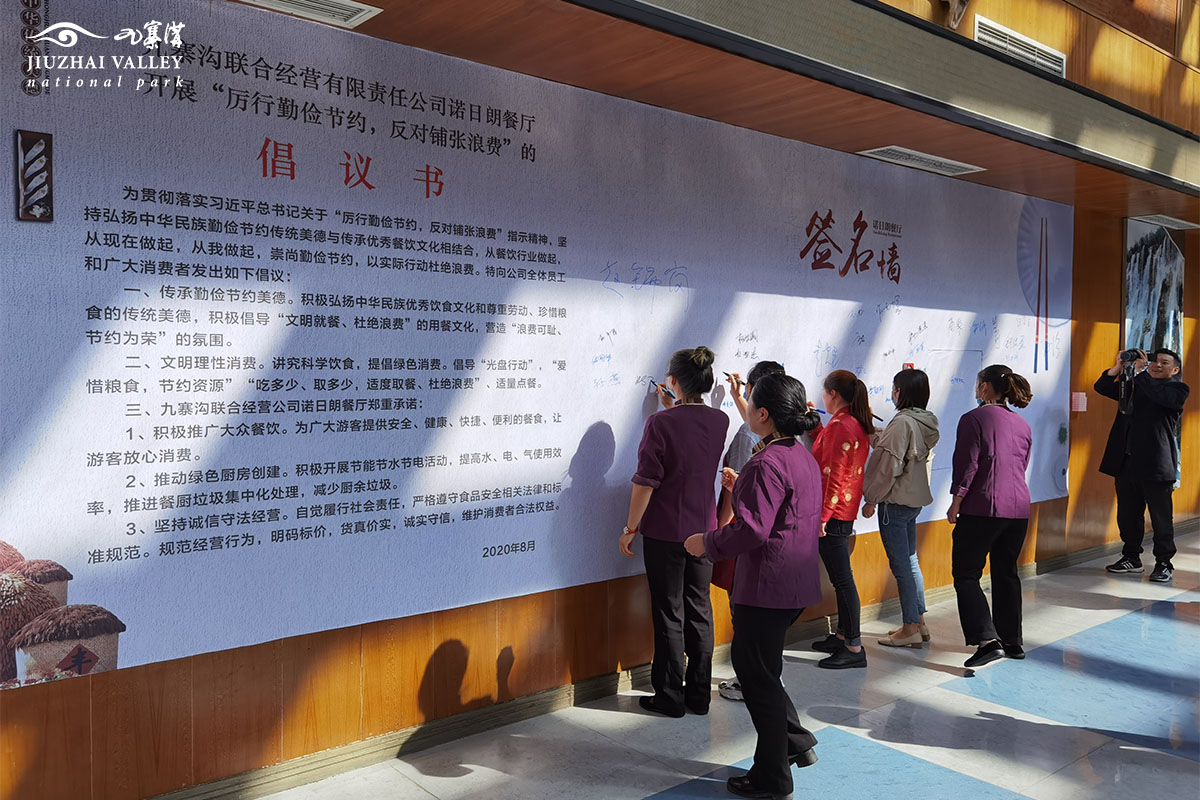 九寨沟
JIUZHAI VALLEY
national park
九寨沟联合经营有限责任公司诺日朗餐厅
开展“厉行勤俭节约，反对铺张浪费”的
倡议书
为贯彻落实习近平总书记关于“厉行勤俭节约，反对铺张浪费”指示精神，坚
持弘扬中华民族勤俭节约传统美德与传承优秀餐饮文化相结合，从餐饮行业做起，
从现在做起，从我做起，崇尚勤俭节约，以实际行动杜绝浪费。特向公司全体员工
和广大消费者发出如下倡议：
一、传承勤俭节约美德。积极弘扬中华民族优秀饮食文化和尊重劳动、珍惜粮
食的传统美德，积极倡导“文明就餐、杜绝浪费”的用餐文化，营造“浪费可耻、
节约为荣”的氛围。
二、文明理性消费。讲究科学饮食，提倡绿色消费。倡导“光盘行动”，“爱
惜粮食，节约资源”“吃多少、取多少，适度取餐、杜绝浪费”、适量点餐。
三、九寨沟联合经营公司诺日朗餐厅郑重承诺：
1、积极推广大众餐饮。为广大游客提供安全、健康、快捷、便利的餐食，让
游客放心消费。
2、推动绿色厨房创建。积极开展节能节水节电活动，提高水、电、气使用效
率，推进餐厨垃圾集中化处理，减少厨余垃圾。
3、坚持诚信守法经营。自觉履行社会责任，严格遵守食品安全相关法律和标
准规范。规范经营行为，明码标价，货真价实，诚实守信，维护消费者合法权益。
2020年8月
签名墙
诺日朗餐厅
丰